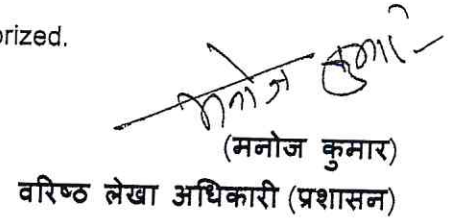 orized.
मनोज कुमार
(मनोज कुमार)
वरिष्ठ लेखा अधिकारी (प्रशासन)